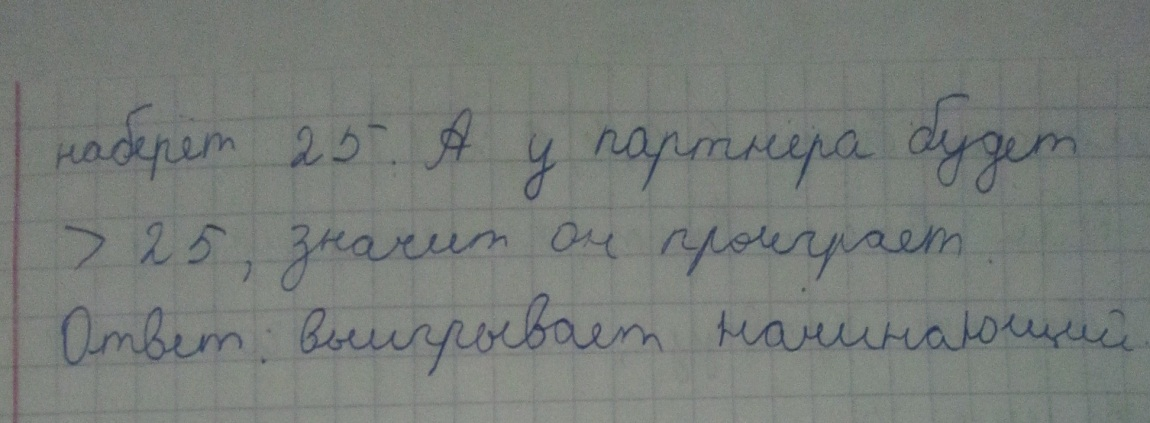 наберёт 25. А у партнёра будет
> 25, значит он проиграет.
Ответ: выигрывает начинающий.